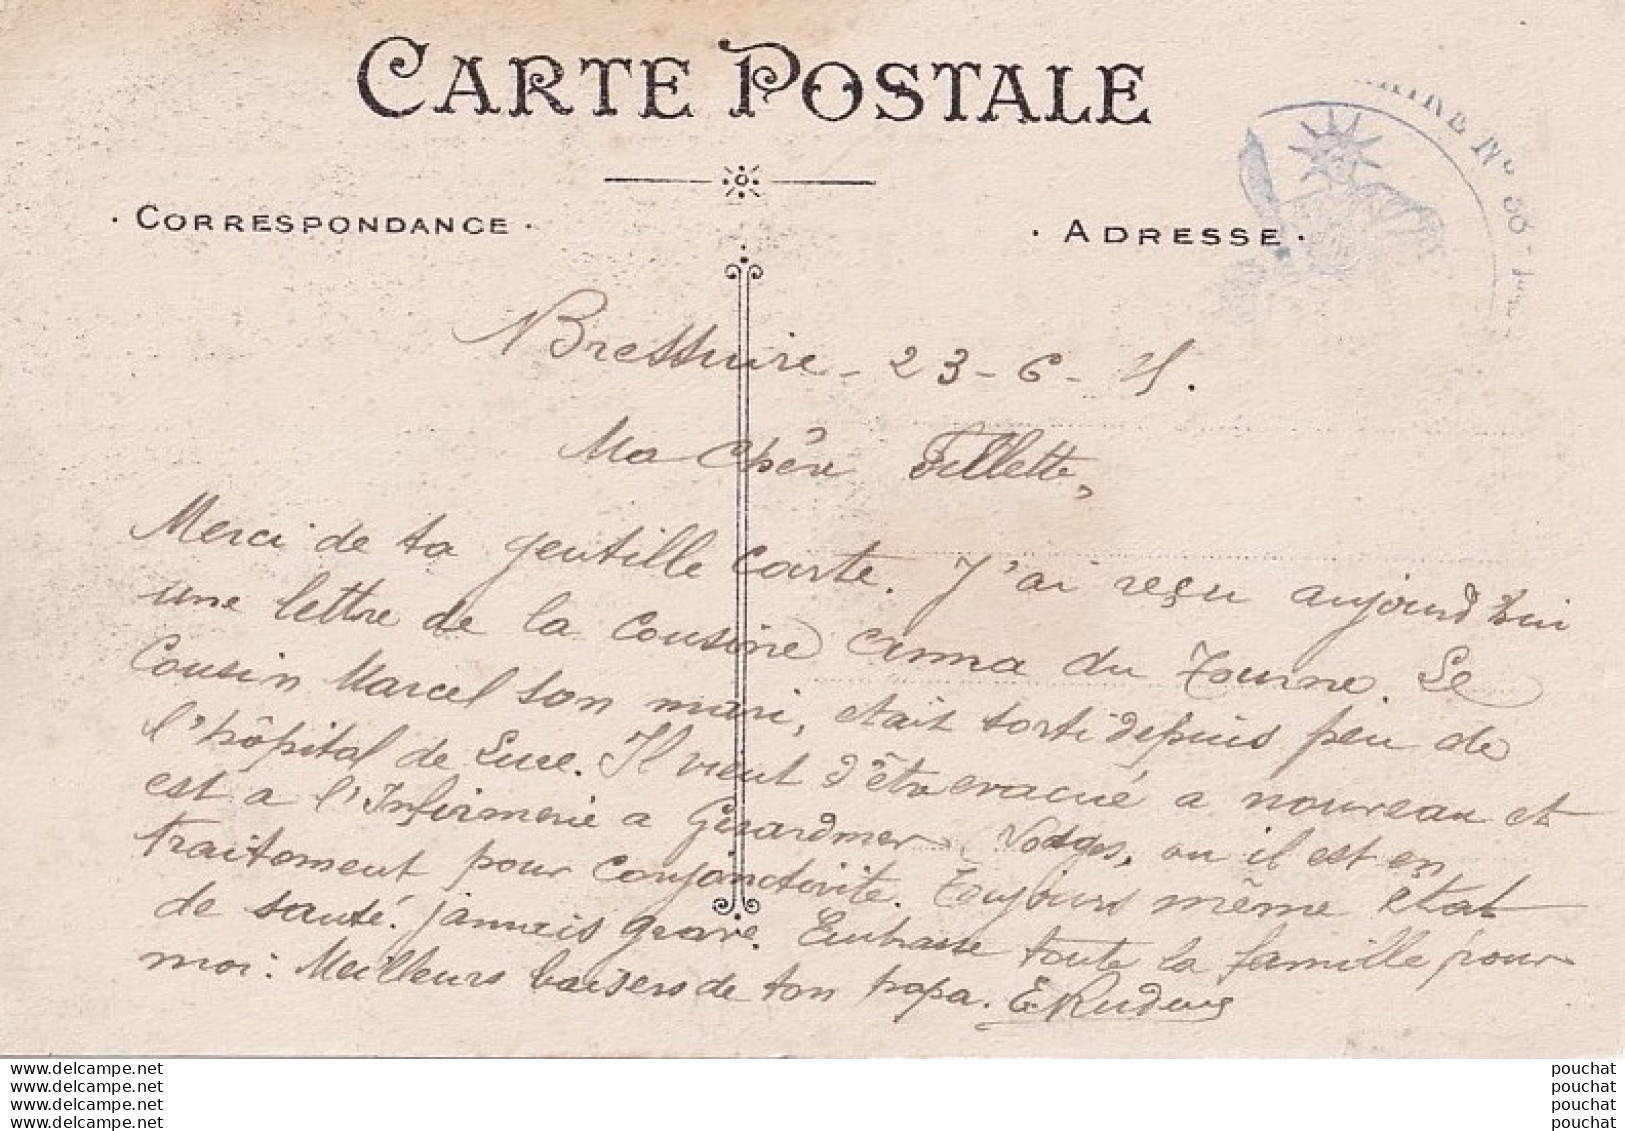 CARTE POSTALE
· CORRESPONDANCE ·
· ADRESSE ·
Nº 
Bressuire - 23-6-15.
Ma Chère Fillette,
Merci de ta gentille Carte. J'ai reçu aujourd'hui
une lettre de la Cousine Anna du Tourne. Le
Cousin Marcel son mari, était sorti depuis peu de
l'hôpital de Luxe. Il vient d'être evacué a nouveau et
est a l'Infirmerie a Gerardmer Vosges, ou il est en
traitement pour Conjonctivite. Toujours même état
de santé. jamais grave. Embrasse toute la famille pour
moi. Meilleurs baisers de ton papa.
www.delcampe.net
www.delcampe.net
www.delcampe.net
www.delcampe.net
pouchat
pouchat
pouchat
pouchat